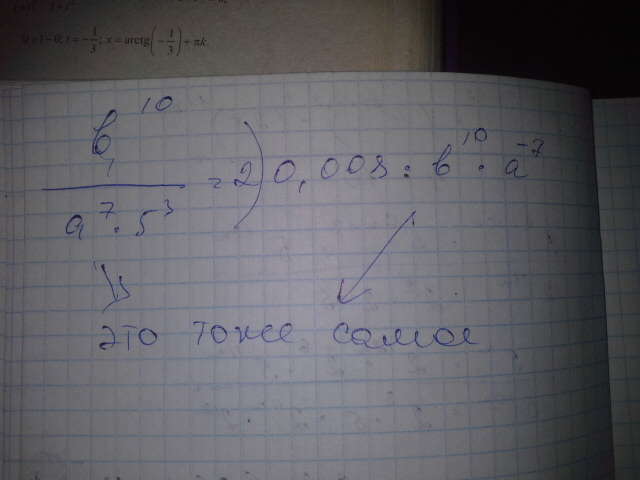 t+1=0; t=-1/3; x=arctg(-1/3)+πk
b¹⁰
a⁷·5³ = 2) 0,008 : b¹⁰ · a⁻⁷
это тоже самое